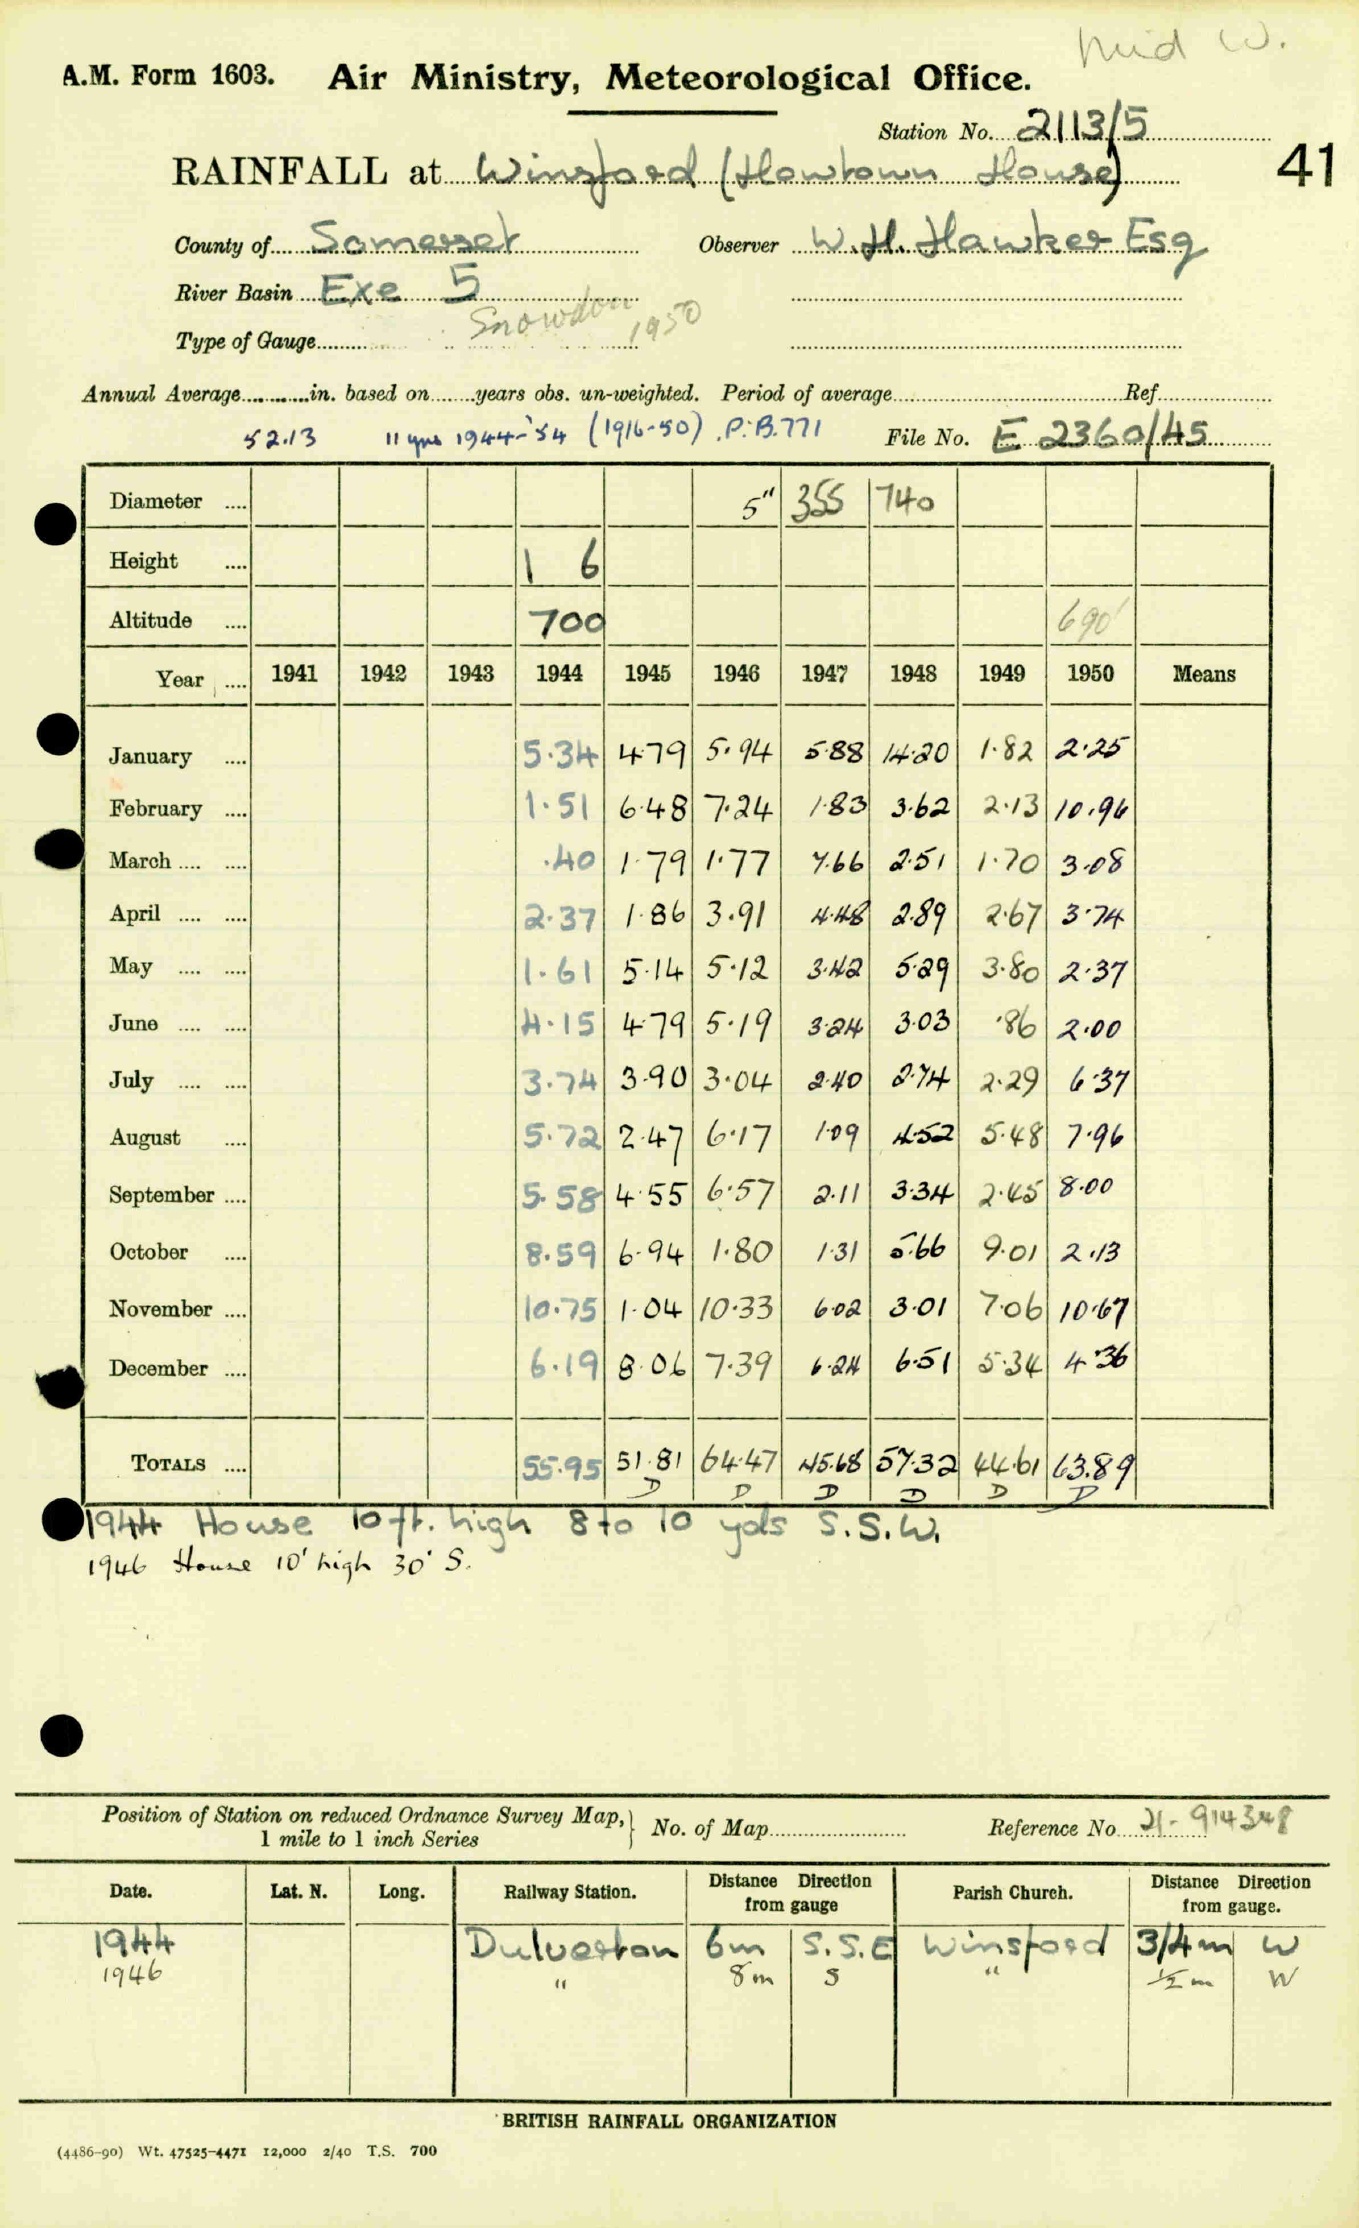 Mid W.
A.M. Form 1603. Air Ministry, Meteorological Office.
Station No. 2113/5
RAINFALL at Winsford (Howtown House) 41
County of Somerset Observer W.H. Hawker Esq
River Basin Exe 5
Type of Gauge Snowdon 1950
Annual Average in. based on years obs. un-weighted. Period of average Ref
52.13 11 yrs 1944-'54 (1916-50) P.B.771 File No. E 2360/45
Diameter .... 5" 355 740
Height .... 1 6
Altitude .... 700 690'
Year .... 1941 1942 1943 1944 1945 1946 1947 1948 1949 1950 Means
January .... 5.34 4.79 5.94 5.88 14.20 1.82 2.25
February .... 1.51 6.48 7.24 1.83 3.62 2.13 10.96
March .... .... .40 1.79 1.77 7.66 2.51 1.70 3.08
April .... .... 2.37 1.86 3.91 4.48 2.89 2.67 3.74
May .... .... 1.61 5.14 5.12 3.42 5.29 3.80 2.37
June .... .... 4.15 4.79 5.19 3.24 3.03 .86 2.00
July .... .... 3.74 3.90 3.04 2.40 2.74 2.29 6.37
August .... 5.72 2.47 6.17 1.09 4.52 5.48 7.96
September .... 5.58 4.55 6.57 2.11 3.34 2.45 8.00
October .... 8.59 6.94 1.80 1.31 5.66 9.01 2.13
November .... 10.75 1.04 10.33 6.02 3.01 7.06 10.67
December .... 6.19 8.06 7.39 6.24 6.51 5.34 4.36
TOTALS .... 55.95 51.81 64.47 45.68 57.32 44.61 63.89
D D D D D D
1944 House 10 ft. high 8 to 10 yds S.S.W.
1946 House 10' high 30' S.
Position of Station on reduced Ordnance Survey Map, } No. of Map Reference No. 21-914348
1 mile to 1 inch Series
Date. Lat. N. Long. Railway Station. Distance Direction from gauge Parish Church. Distance Direction from gauge.
1944 Dulverton 6m S.S.E Winsford 3/4m W
1946 " 8m S " ½m W
BRITISH RAINFALL ORGANIZATION
(4486-90) Wt. 47525-4471 12,000 2/40 T.S. 700